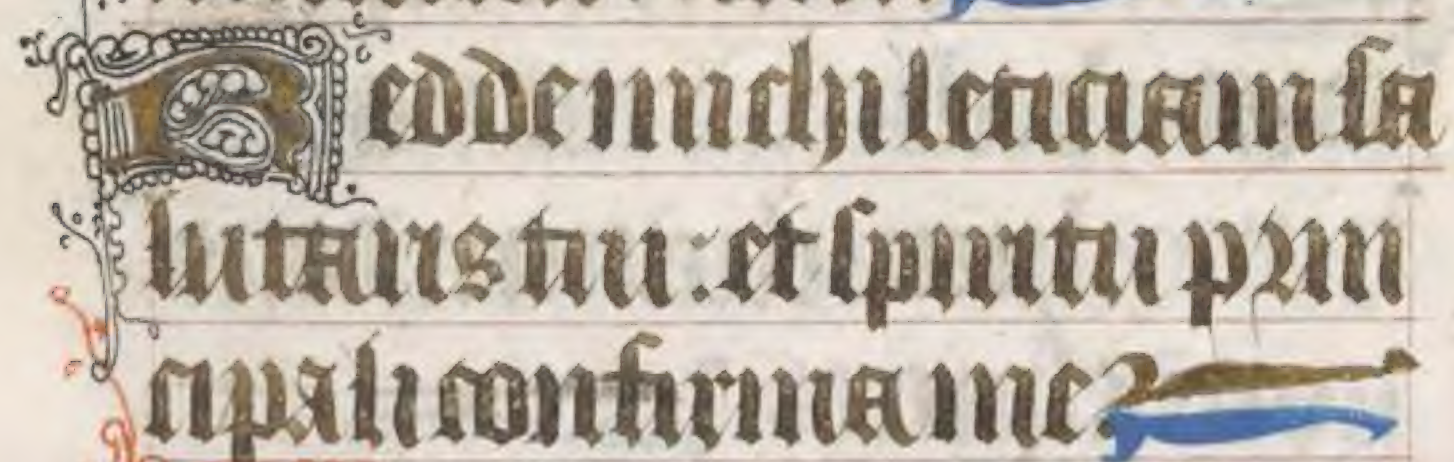 Redde michi leticiam sa
lutaris tui : et spiritu prin
cipali confirma me